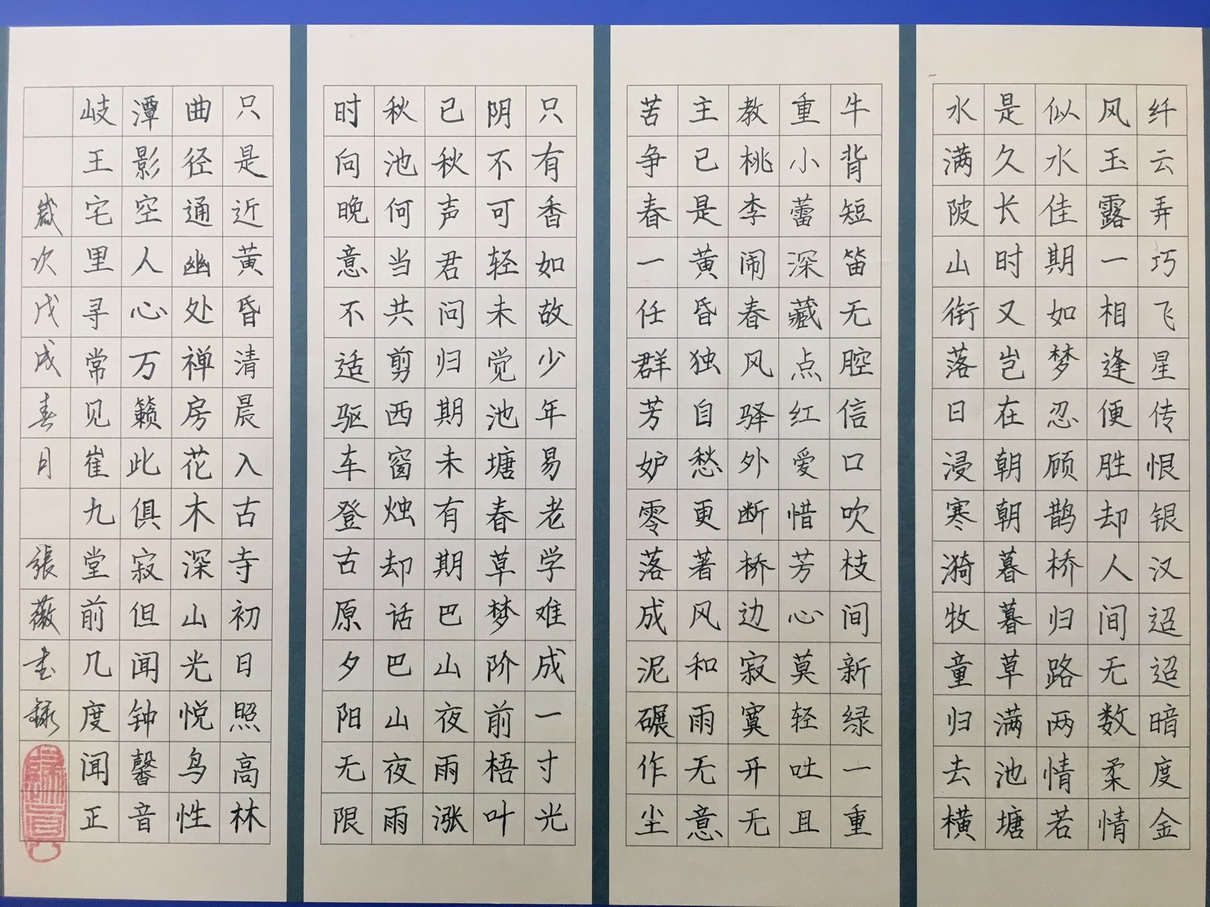 纤云弄巧飞星传恨银汉迢迢暗度金
风玉露一相逢便胜却人间无数柔情
似水佳期如梦忍顾鹊桥归路两情若
是久长时又岂在朝朝暮暮草满池塘
水满陂山衔落日浸寒漪牧童归去横
牛背短笛无腔信口吹枝间新绿一重
重小蕾深藏点红爱惜芳心莫轻吐且
教桃李闹春风驿外断桥边寂寞开无
主已是黄昏独自愁更著风和雨无意
苦争春一任群芳妒零落成泥碾作尘
只有香如故少年易老学难成一寸光
阴不可轻未觉池塘春草梦阶前梧叶
已秋声君问归期未有期巴山夜雨涨
秋池何当共剪西窗烛却话巴山夜雨
时向晚意不适驱车登古原夕阳无限
只是近黄昏清晨入古寺初日照高林
曲径通幽处禅房花木深山光悦鸟性
潭影空人心万籁此俱寂但闻钟馨音
岐王宅里寻常见崔九堂前几度闻正
歲次戊戌春月 張薇書録